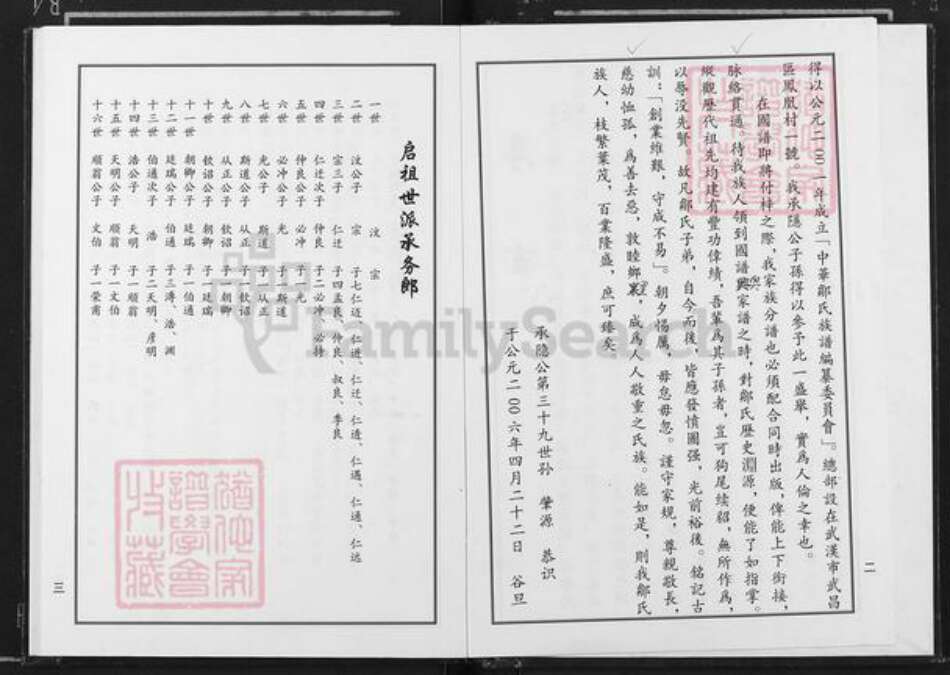 得以公元二〇〇一年成立「中華鄒氏族譜編纂委員會」。總部設在武漢市武昌
區鳳凰村一號。我承隱公子孫得以參予此一盛舉，實為人倫之幸也。
在國譜即將付梓之際，我家族分譜也必須配合同時出版，俾能上下銜接，
脉絡貫通。待我族人領到國譜與家譜之時，對鄒氏歷史淵源，便能了如指掌。
縱觀歷代祖先均建有豐功偉績，吾輩為其子孫者，豈可狗尾续貂，無所作為，
以辱没先賢。故凡鄒氏子弟，自今而後，皆應發憤圖强，光前裕後。銘記古
訓：「創業维艱，守成不易」。朝夕惕厲，毋怠毋忽。謹守家規，尊親敬長，
慈幼恤孤，為善去惡，敦睦鄉里，成為人人敬重之氏族。能如是，則我鄒氏
族人，枝繁葉茂，百業隆盛，庶可臻矣。
承隐公第三十九世孙 肇源 恭识
于公元二〇〇六年四月二十二日 谷旦
二
启祖世派承务郎
一世 汶 宗
二世 汶公子 宗 子七仁近、仁进、仁迁、仁透、仁遇、仁通、仁远
三世 宗三子 仁迁 子四孟良、仲良、叔良、季良
四世 仁迁次子 仲良 子二必冲、必持
五世 仲良公子 必冲 子一光
六世 必冲公子 光 子一斯道
七世 光公子 斯道 子一从正
八世 斯道公子 从正 子一钦诏
九世 从正公子 钦诏 子一朝卿
十世 钦诏公子 朝卿 子一廷瑞
十一世 朝卿公子 廷瑞 子一伯通
十二世 廷瑞公子 伯通 子三溥、浩、渊
十三世 伯通次子 浩 子二天明、彦明
十四世 浩公子 天明 子一顺翁
十五世 天明公子 顺翁 子一文伯
十六世 顺翁公子 文伯 子一荣甫
三
FamilySearch